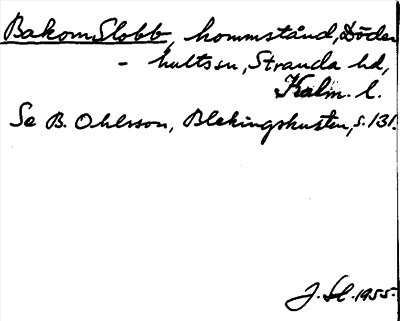 BakomSlobb, hommstånd, Döder
- hultssn, Stranda hd,
Kalm. l.
Se B. Ohlsson, Blekingskusten, s. 131.
J. Sl. 1955.